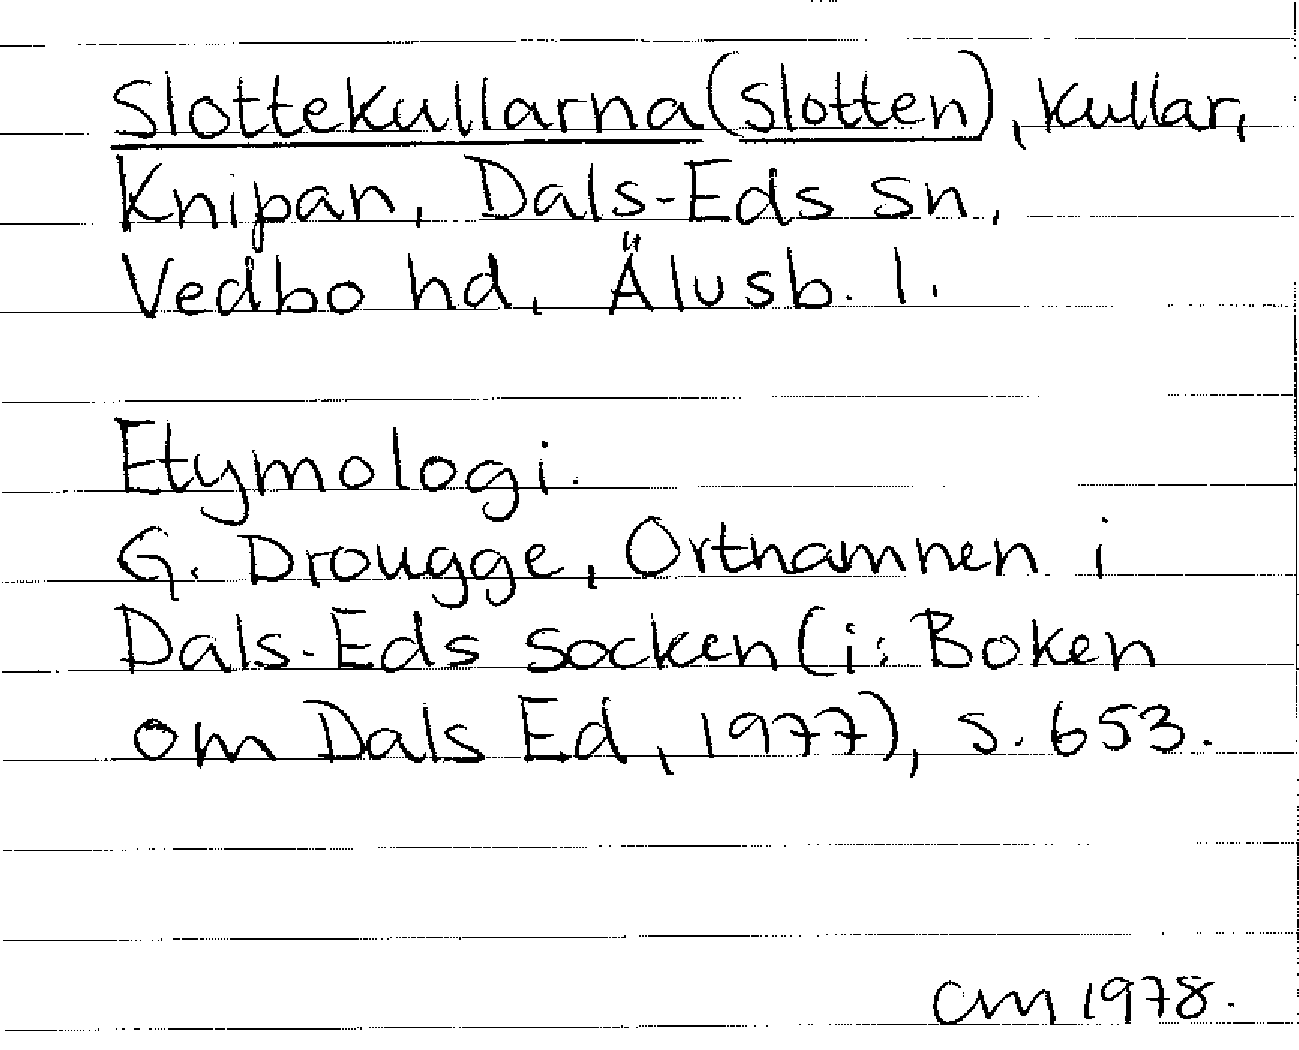 Slottekullarna (Slotten), kullar,
Knipan, Dals-Eds sn,
Vedbo hd, Älvsb. l.
Etymologi.
G. Drougge, Ortnamnen i
Dals-Eds socken (i: Boken
om Dals Ed, 1977), s. 653.
CM 1978.